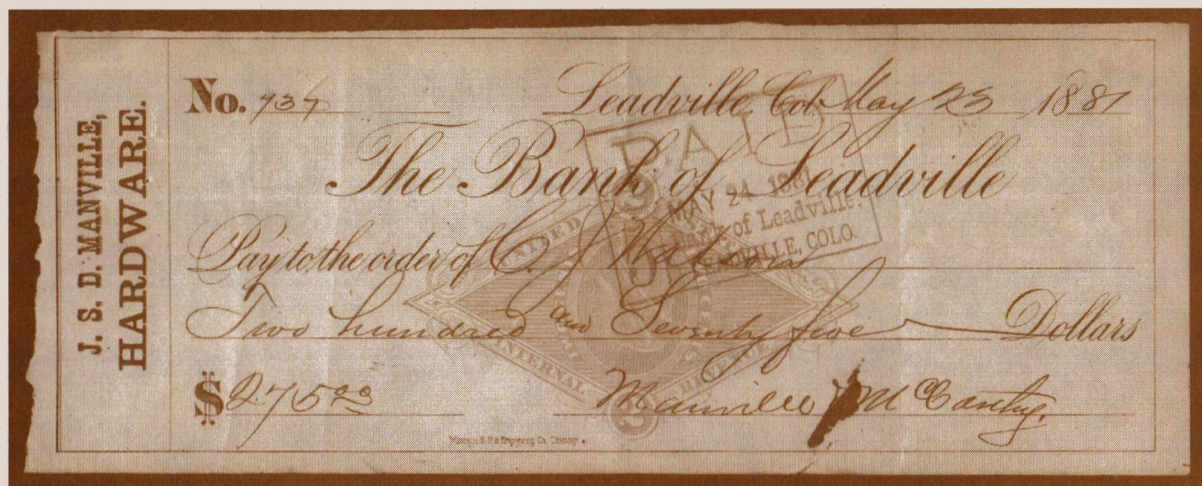 J. S. D. MANVILLE,
HARDWARE.
No. 737
Leadville, Col. May 23 1881
The Bank of Leadville
PAID
MAY 24 1881
Bank of Leadville.
LEADVILLE, COLO.
Pay to the order of C. J.
Two hundred and Seventy five Dollars
$ 275 00
Manville & McCarthy.
UNITED STATES
INTERNAL REVENUE
2
2